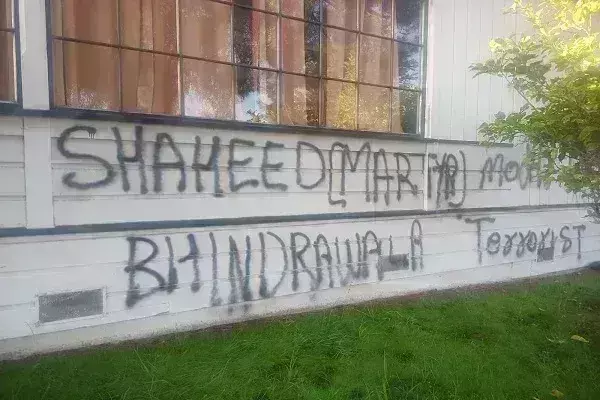 SHAHEED [MARTYR]
BHINDRAWALA Terrorist